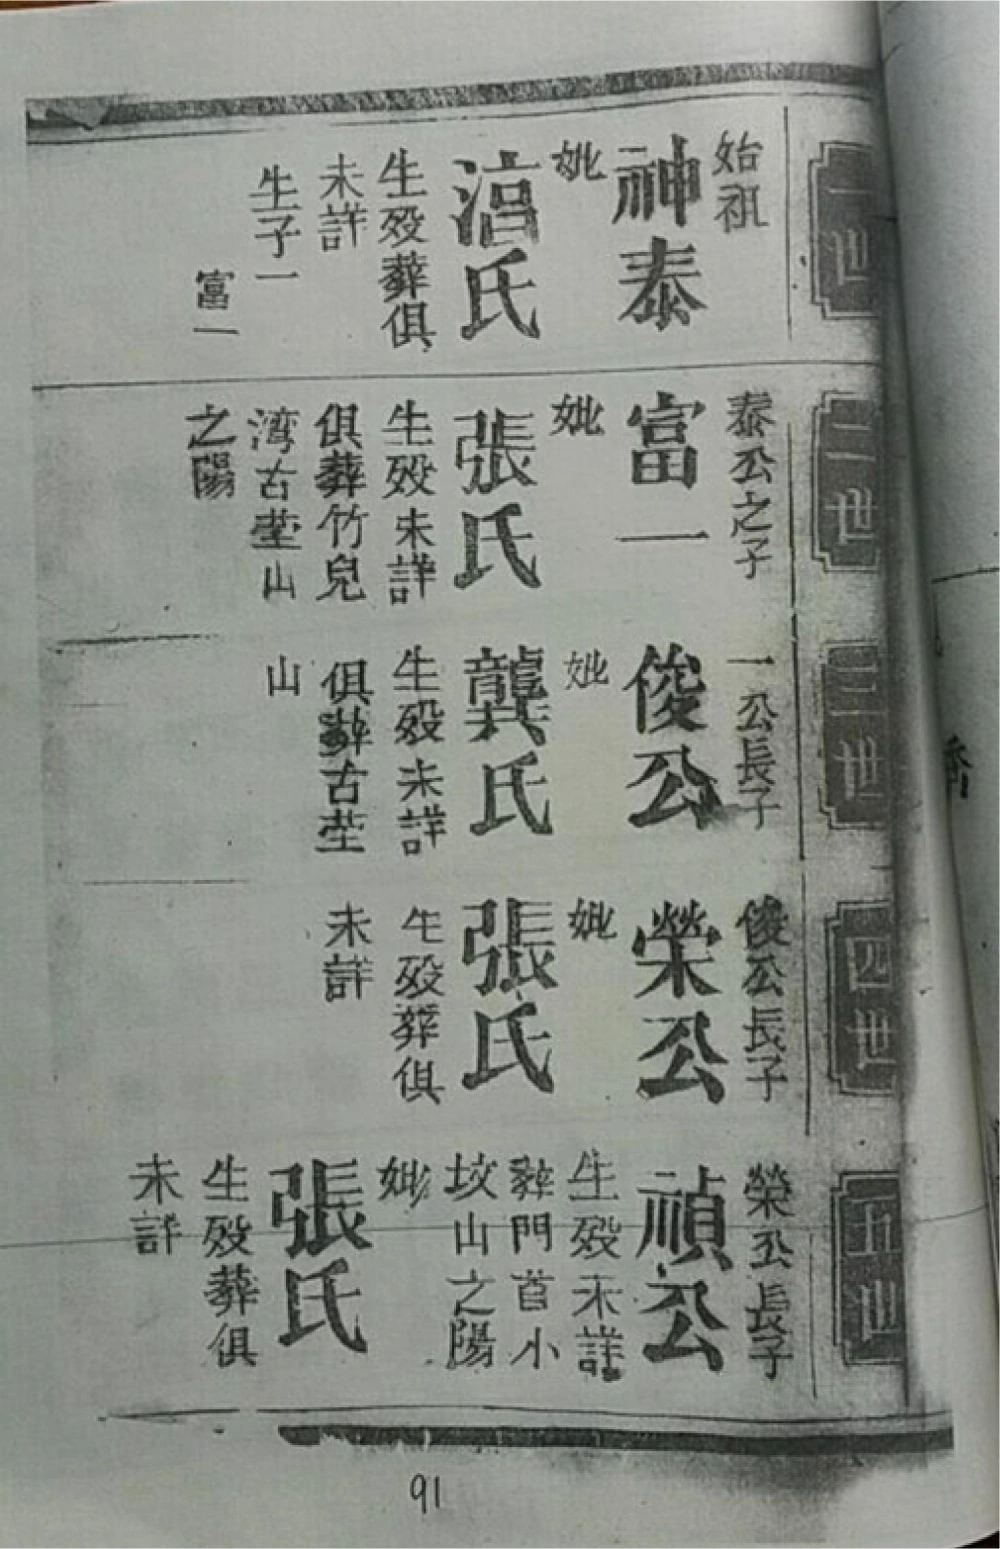 一世
始祖
神泰
妣
淊氏
生殁葬俱
未詳
生子一
富一
二世
泰公之子
富一
妣
張氏
生殁未詳
俱葬竹兒
湾古茔山
之陽
三世
一公長子
俊公
妣
龔氏
生殁未詳
俱葬古茔
山
四世
俊公長子
榮公
妣
張氏
生殁葬俱
未詳
五世
榮公長子
禎公
生殁未詳
葬門首小
坟山之陽
妣
張氏
生殁葬俱
未詳
91